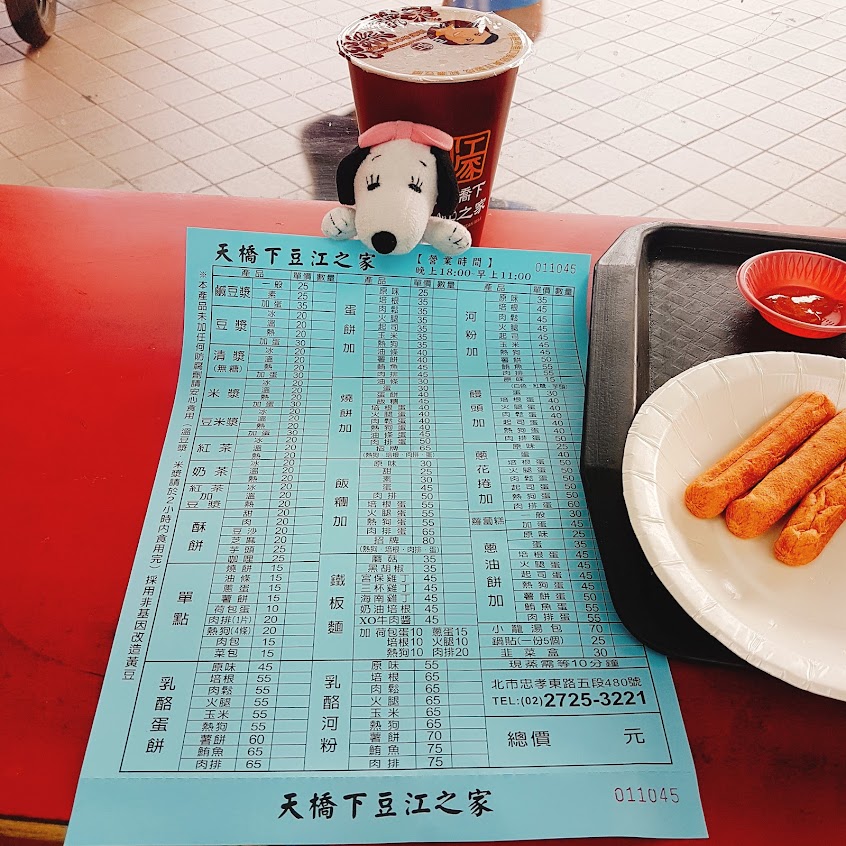 天橋下豆江之家
【營業時間】
晚上18:00-早上11:00
011045
※本產品未加任何防腐劑請安心食用(溫豆漿、米漿請於2小時內食用完)採用非基因改造黃豆
產品 單價 數量
鹹豆漿 一般 25
素 25
加蛋 35
豆漿 冰 20
溫 20
熱 20
加蛋 30
清漿(無糖) 冰 20
溫 20
熱 20
加蛋 30
米漿 冰 20
溫 20
熱 20
加蛋 30
豆米漿 冰 20
溫 20
熱 20
加蛋 30
紅茶 冰 20
溫 20
奶茶 熱 20
冰 20
紅茶加豆漿 溫 20
熱 20
酥餅 甜 20
肉 20
豆沙 20
芝麻 20
芋頭 25
咖哩 25
單點 燒餅 15
油條 15
蔥蛋 15
薯餅 15
荷包蛋 10
肉排(1片) 20
熱狗(4條) 20
肉包 15
菜包 15
產品 單價 數量
蛋餅加 原味 25
培根 35
肉鬆 35
火腿 35
起司 35
玉米 35
熱狗 35
油條 40
薯餅 40
鮪魚 45
肉排 45
燒餅加 油條 30
蛋 30
蛋餅 40
飯糰 45
培根蛋 40
火腿蛋 40
肉鬆蛋 40
熱狗蛋 40
油條蛋 40
肉排蛋 50
招牌 65
(熱狗、培根、肉排、蛋)
飯糰加 原味 30
甜 25
素 25
蛋 40
肉排 50
培根蛋 55
火腿蛋 55
熱狗蛋 55
肉排蛋 65
招牌 80
(熱狗、培根、肉排、蛋)
鐵板麵 蘑菇 35
黑胡椒 35
宮保雞丁 45
三杯雞丁 45
海南雞丁 45
奶油培根 45
XO牛肉醬 45
加 荷包蛋10 蔥蛋15
培根10 火腿10
熱狗10 肉排20
產品 單價 數量
河粉加 原味 35
培根 45
肉鬆 45
火腿 45
起司 45
玉米 45
熱狗 45
薯餅 50
鮪魚 55
肉排 55
饅頭加 原味 15
蛋 30
培根蛋 40
火腿蛋 40
肉鬆蛋 40
起司蛋 40
熱狗蛋 40
肉排蛋 50
蔥花捲加 原味 25
蛋 40
培根蛋 50
火腿蛋 50
肉鬆蛋 50
起司蛋 50
熱狗蛋 50
肉排蛋 60
蘿蔔糕 一般 30
加蛋 45
蔥油餅加 原味 25
蛋 35
培根蛋 45
火腿蛋 45
起司蛋 45
熱狗蛋 45
薯餅蛋 50
鮪魚蛋 55
肉排蛋 55
小籠湯包 70
鍋貼(一份5個) 25
韭菜盒 30
現蒸需等10分鐘
乳酪蛋餅 原味 45
培根 55
肉鬆 55
火腿 55
玉米 55
熱狗 55
薯餅 60
鮪魚 65
肉排 65
乳酪河粉 原味 55
培根 65
肉鬆 65
火腿 65
玉米 65
熱狗 65
薯餅 70
鮪魚 75
肉排 75
北市忠孝東路五段480號
TEL:(02)2725-3221
總價 元
天橋下豆江之家
011045